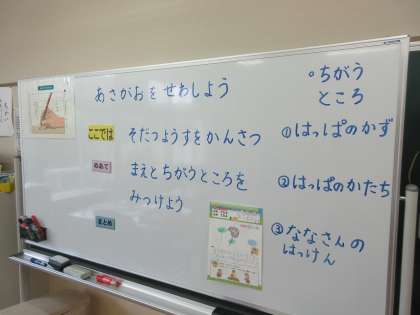 あさがおをせわしよう
ここでは
そだつようすをかんさつ
めあて
まえとちがうところを
みつけよう
まとめ
○ちがう
ところ
①はっぱのかず
②はっぱのかたち
③ななさんの
はっけん